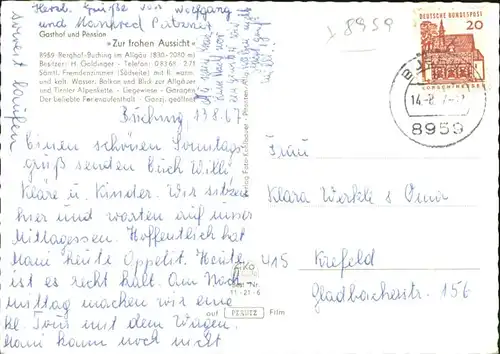 Herzl. Grüße von Wolfgang
und Manfred
Gasthof und Pension
»Zur frohen Aussicht«
8959 Berghof-Buching im Allgäu (830-2080 m)
Besitzer: H. Goldinger - Telefon: 08368 271
Sämtl. Fremdenzimmer (Südseite) mit fl. warm.
und kalt. Wasser. Balkon und Blick zur Allgäuer
und Tiroler Alpenkette - Liegewiese - Garagen
Der beliebte Ferienaufenthalt - Ganzj. geöffnet
soweit laufen
Buching, 13.8.67
Einen schönen Sonntags-
gruß senden Euch Willi
Kläre u. Kinder. Wir sitzen
hier und warten auf unser
Mittagessen. Hoffentlich hat
Mani heute Appetit. Heute
ist es recht kalt. Am Nach
mittag machen wir eine
kl. Tour mit dem Wagen.
Mani kann noch nicht
8959
DEUTSCHE BUNDESPOST
20
LORSCH/HESSEN
14.-8.
8959
Frau
Klara Werkle u Oma
415 Krefeld
Gladbacherstr. 156
auf PERUTZ Film